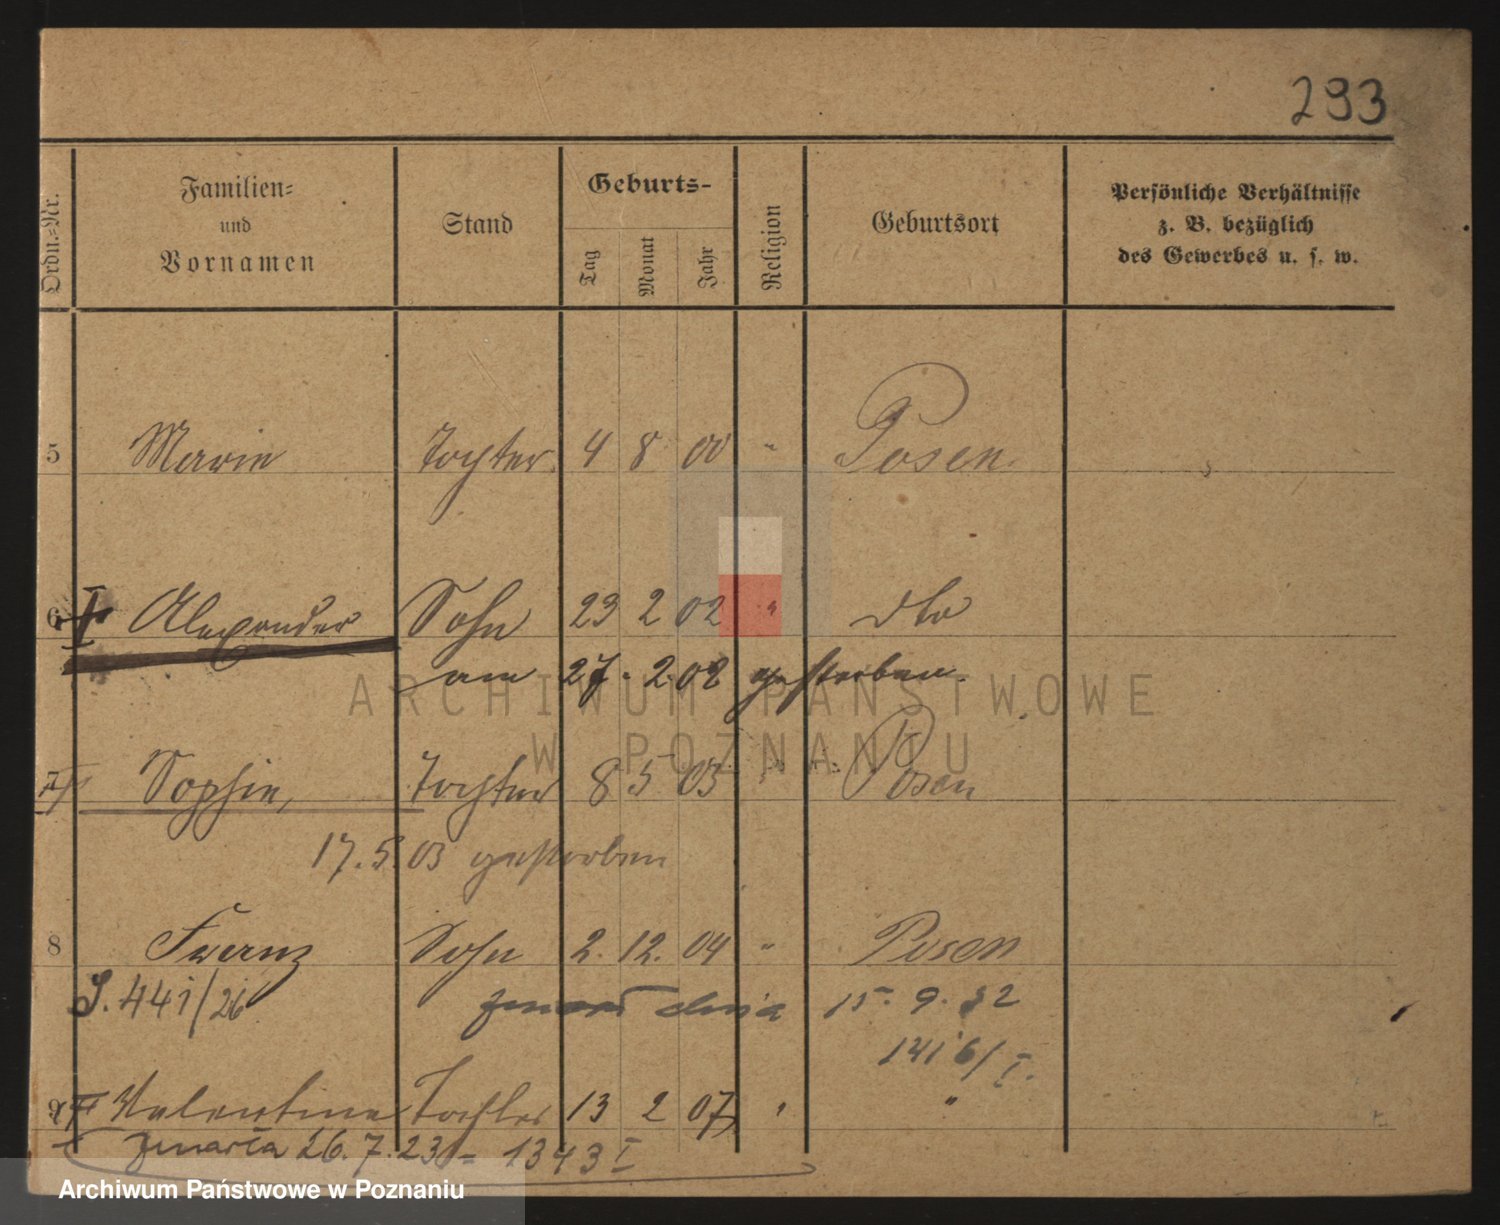 293
Ordn.-Nr. Familien- und Vornamen Stand Geburts- Tag Monat Jahr Religion Geburtsort Persönliche Verhältnisse z. B. bezüglich des Gewerbes u. s. w.
5 Marie Tochter 4 8 00 " Posen
6 Alexander Sohn 23 2 02 " dto
am 27. 2. 02 gestorben.
7 Sophie, Tochter 8 5 03 " Posen
17. 5. 03 gestorben
8 Franz Sohn 2. 12. 04 " Posen
S. 441/26 zmarł dnia 15. 9. 32
1416/I.
9 Valentine Tochter 13 2 07 " "
zmarła 26. 7. 23 - 1343 I
ARCHIWUM PAŃSTWOWE
W POZNANIU
Archiwum Państwowe w Poznaniu